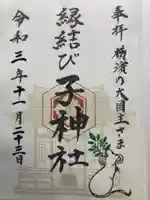 奉拝 横濱の大国主さま
縁結び 子神社
令和三年十一月二十三日